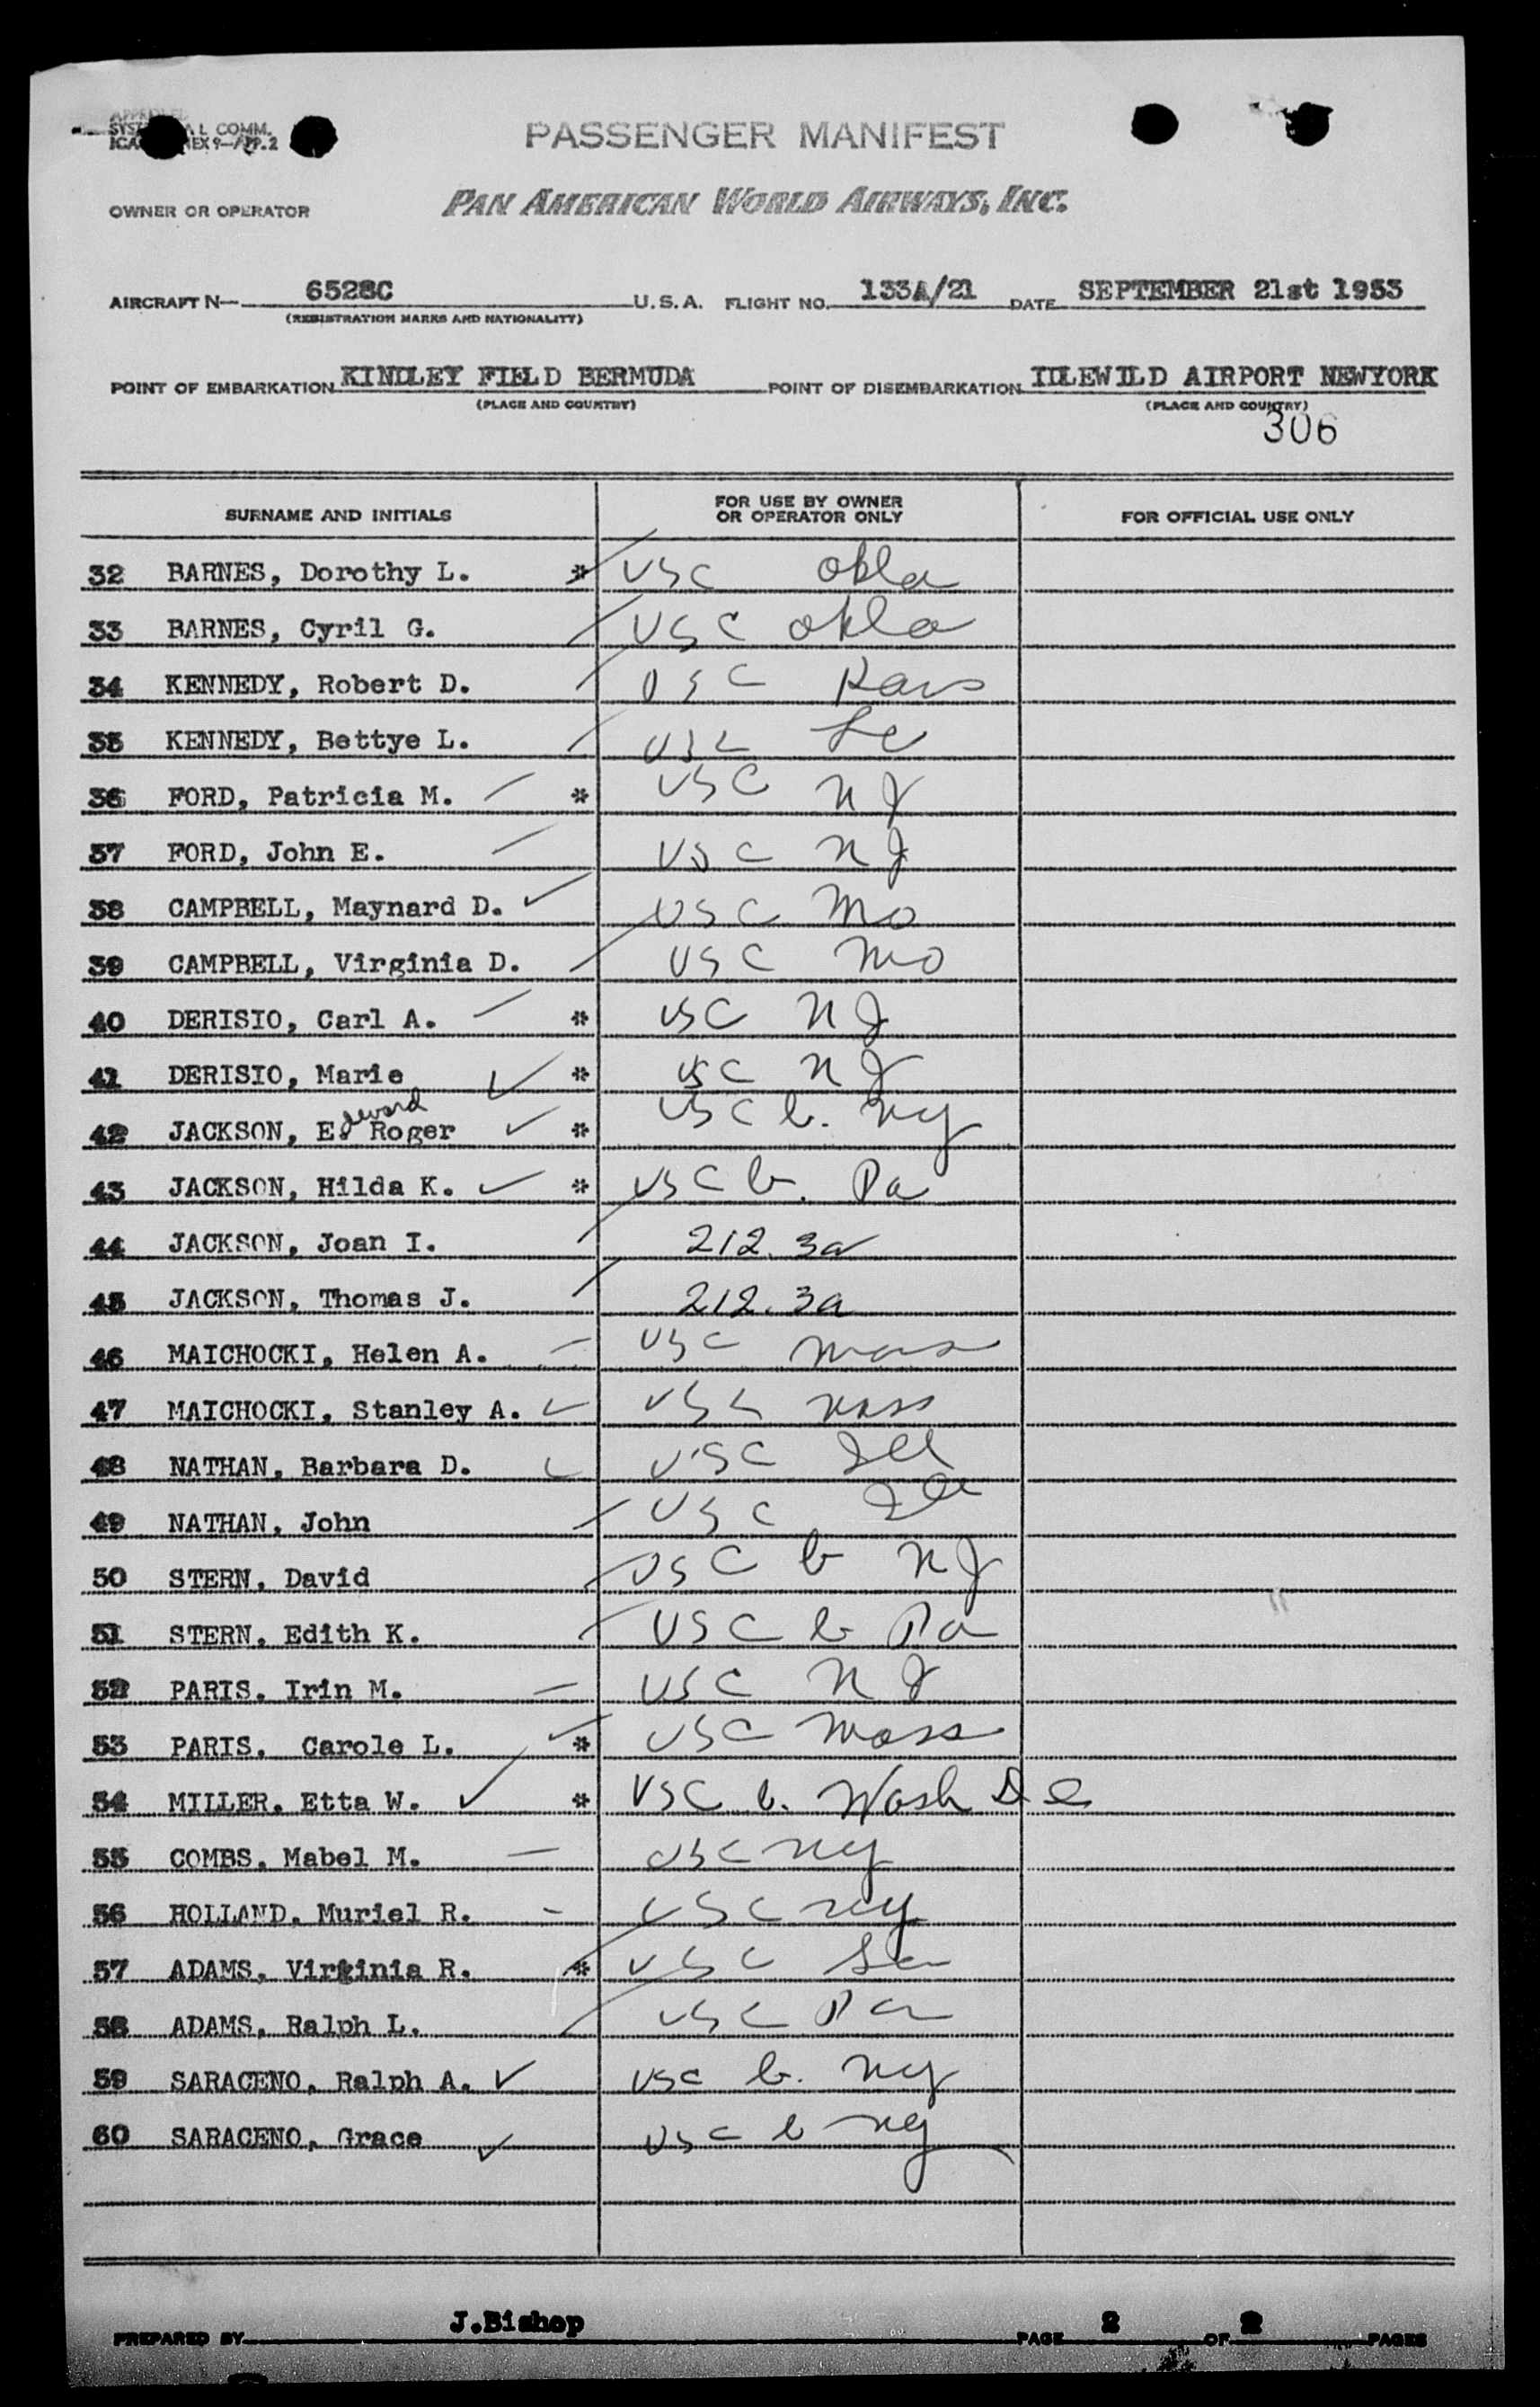 PASSENGER MANIFEST
L COMM.
OWNER OR OPERATOR PAN AMERICAN WORLD AIRWAYS, INC.
AIRCRAFT N— 6528C U.S.A. FLIGHT NO. 133A/21 DATE SEPTEMBER 21st 1953
(REGISTRATION MARKS AND NATIONALITY)
POINT OF EMBARKATION KINDLEY FIELD BERMUDA POINT OF DISEMBARKATION IDLEWILD AIRPORT NEWYORK
(PLACE AND COUNTRY) (PLACE AND COUNTRY)
306
SURNAME AND INITIALS FOR USE BY OWNER OR OPERATOR ONLY FOR OFFICIAL USE ONLY
32 BARNES, Dorothy L. * USC Okla
33 BARNES, Cyril G. USC Okla
34 KENNEDY, Robert D. USC Kans
35 KENNEDY, Bettye L. USC
36 FORD, Patricia M. * USC NJ
37 FORD, John E. USC NJ
38 CAMPBELL, Maynard D. ✓ USC Mo
39 CAMPBELL, Virginia D. USC Mo
40 DERISIO, Carl A. * USC NJ
41 DERISIO, Marie ✓ * USC NJ
42 JACKSON, Edward Roger ✓ * USC b. NY
43 JACKSON, Hilda K. ✓ * USC b. Pa
44 JACKSON, Joan I. 212.3a
45 JACKSON, Thomas J. 212.3a
46 MAICHOCKI, Helen A. USC Mass
47 MAICHOCKI, Stanley A. ✓ USC Mass
48 NATHAN, Barbara D. ✓ USC Ill
49 NATHAN, John USC Ill
50 STERN, David USC b NJ
51 STERN, Edith K. USC b Pa
52 PARIS, Irin M. USC NJ
53 PARIS, Carole L. * USC Mass
54 MILLER, Etta W. ✓ * USC b. Wash DC
55 COMBS, Mabel M. USC NY
56 HOLLAND, Muriel R. USC NY
57 ADAMS, Virginia R. * USC
58 ADAMS, Ralph L. USC Pa
59 SARACENO, Ralph A. ✓ USC b. NY
60 SARACENO, Grace ✓ USC b NY
PREPARED BY J.Bishop PAGE 2 OF 2 PAGES